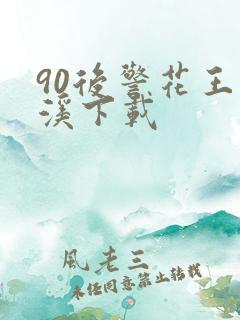 90後警花王
溪下載
風老三
未经同意禁止转载